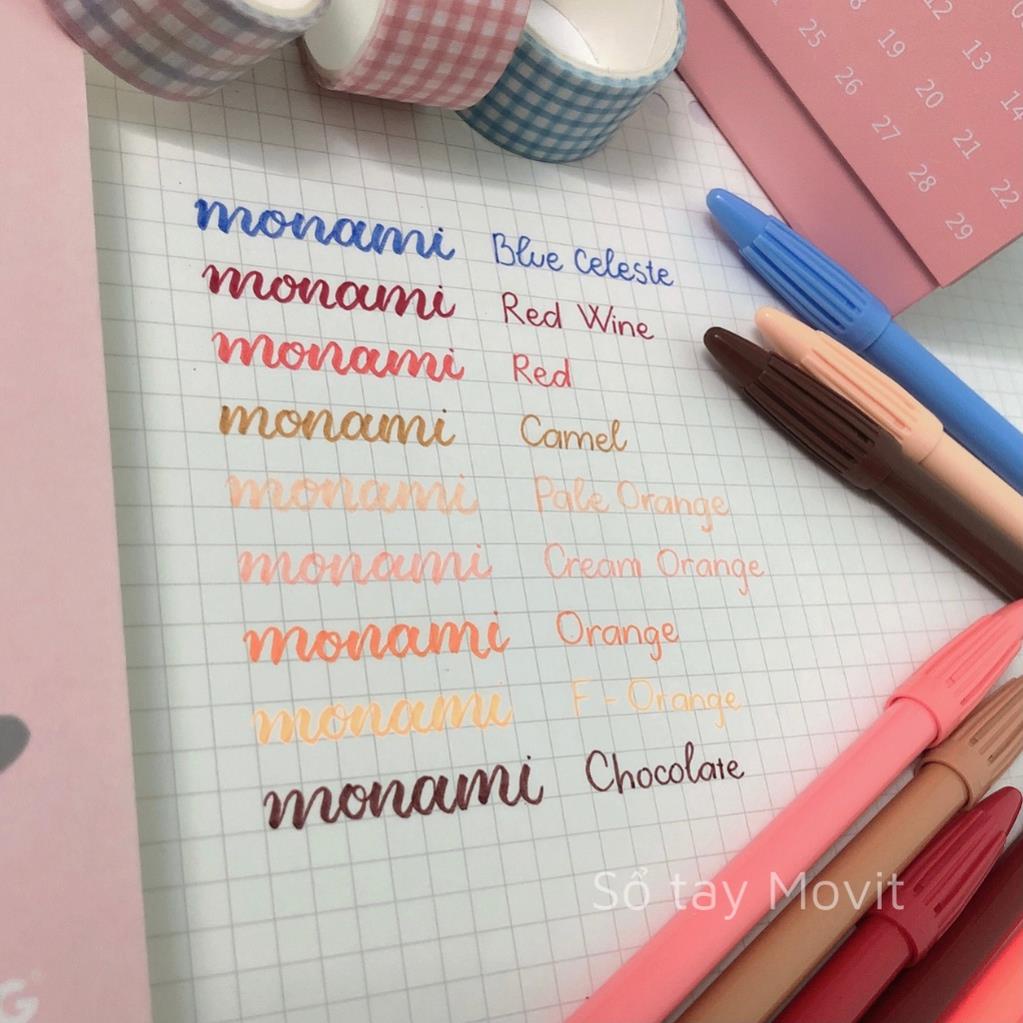 12
25
19
13
26
20
14
27
21
28
22
29
monami Blue Celeste
monami Red Wine
monami Red
monami Camel
monami Pale Orange
monami Cream Orange
monami Orange
monami F - Orange
monami Chocolate
Sổ tay Movit
G